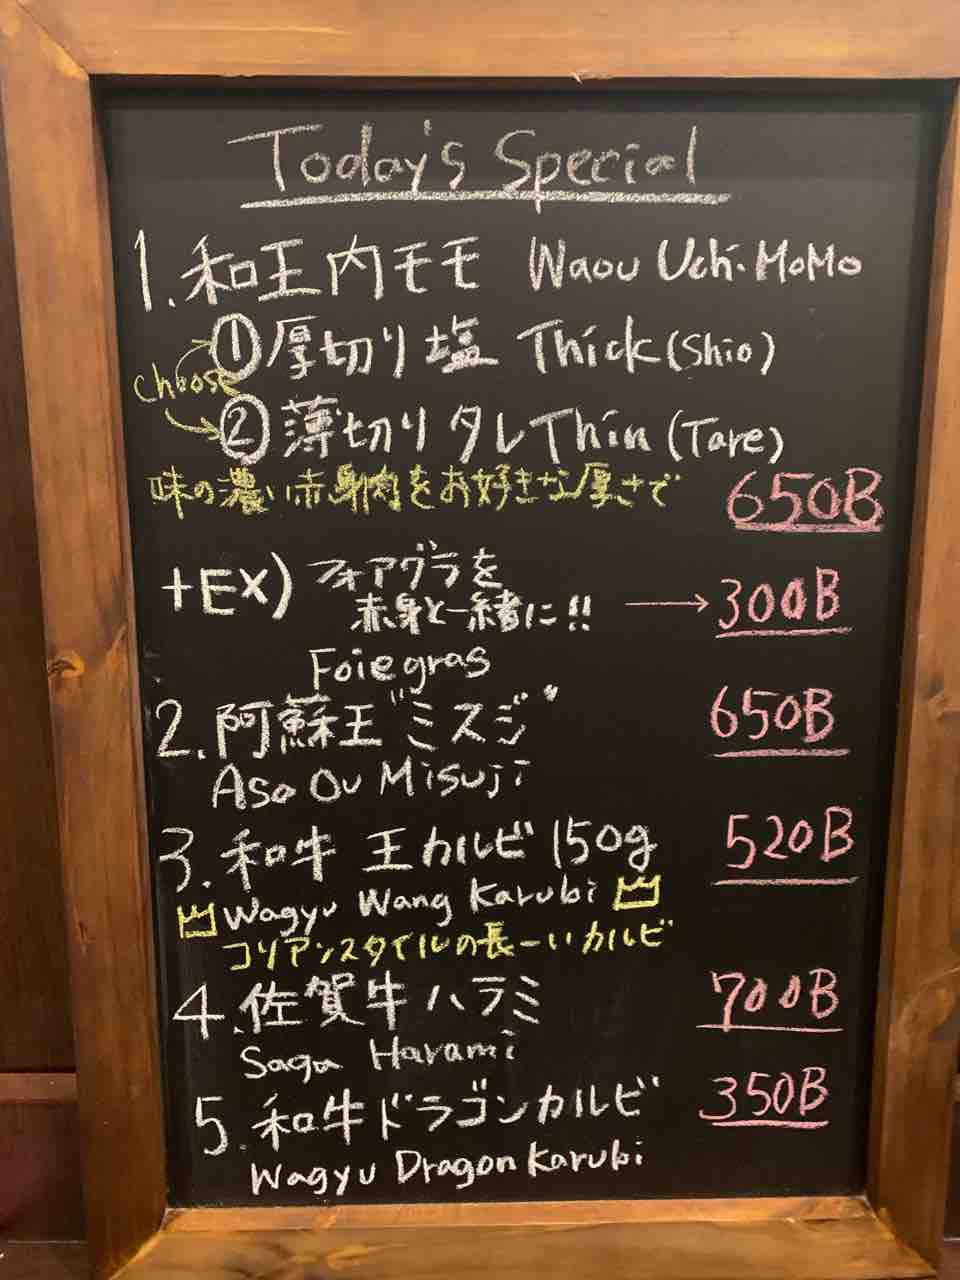 Today's Special
1. 和王内モモ Waou Uchi MoMo
① 厚切り塩 Thick (Shio)
choose
② 薄切りタレ Thin (Tare)
味の濃い赤身肉をお好きな厚さで 650B
+EX) フォアグラを
赤身と一緒に!! → 300B
Foie gras
2. 阿蘇王 "ミスジ" 650B
Aso Ou Misuji
3. 和牛 王カルビ 150g 520B
Wagyu Wang Karubi
コリアンスタイルの長ーいカルビ
4. 佐賀牛ハラミ 700B
Saga Harami
5. 和牛ドラゴンカルビ 350B
Wagyu Dragon Karubi